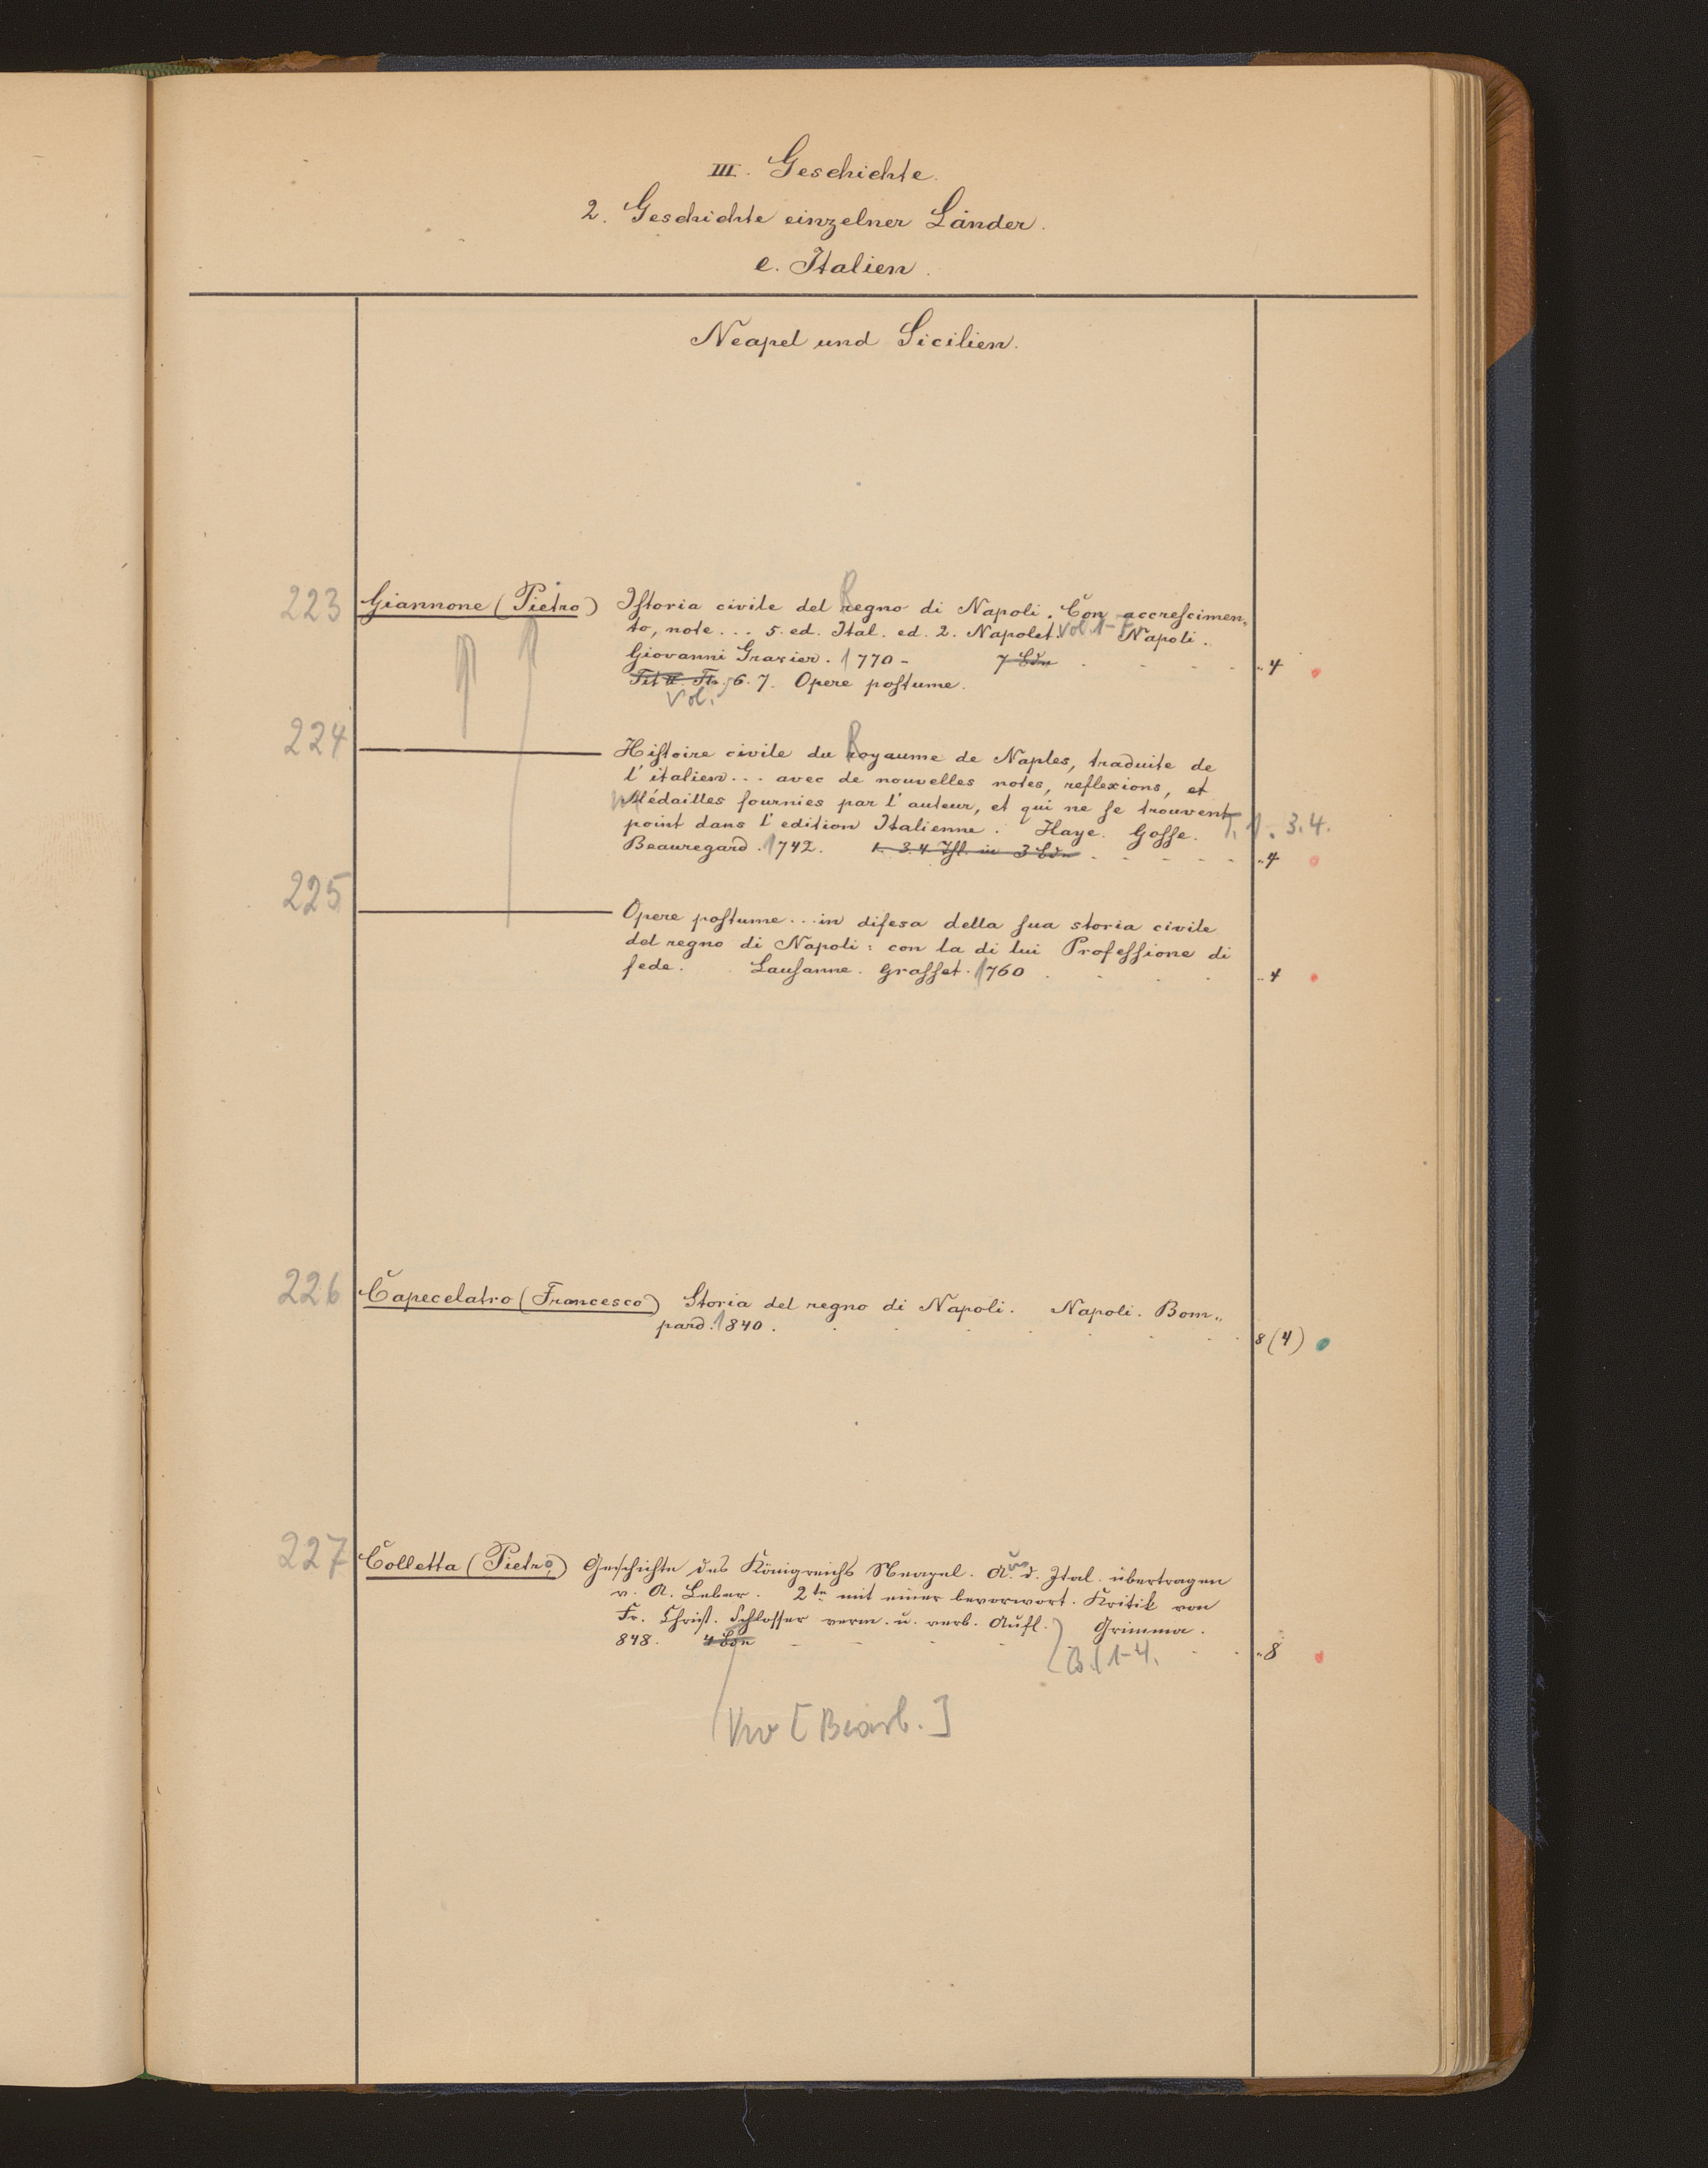 III. Geschichte.
2. Geschichte einzelner Länder.
e. Italien.
Neapel und Sicilien.
223 Giannone (Pietro) Istoria civile del Regno di Napoli. Con accrescimen„
to, note... 5. ed. Ital. ed. 2. Napolet. Vol. 1-7. Napoli.
Giovanni Gravier. 1770- 7 Bdn „4
6. 7. Opere postume.
Vol.
224 Histoire civile du Royaume de Naples, traduite de
l'italien... avec de nouvelles notes, reflexions, et
Médailles fournies par l'auteur, et qui ne se trouvent
point dans l'edition Italienne. Haye. Gosse. T. 1. 3. 4.
Beauregard. 1742. 1. 3. 4 Thl. in 3 Bdn „4
225 Opere postume... in difesa della sua storia civile
del regno di Napoli: con la di lui Professione di
fede. Lausanne. Grasset. 1760 „4
226 Capecelatro (Francesco) Storia del regno di Napoli. Napoli. Bom„
pard. 1840. 8 (4)
227 Colletta (Pietro) Geschichte des Königreichs Neapel. Aus d. Ital. übertragen
v. A. Leber. 2te mit einer bevorwort. Kritik von
Fr. Christ. Schlosser verm. u. verb. Aufl. Grimma.
848. 4 Bdn „8
Bd 1-4.
Vw [Bearb.]